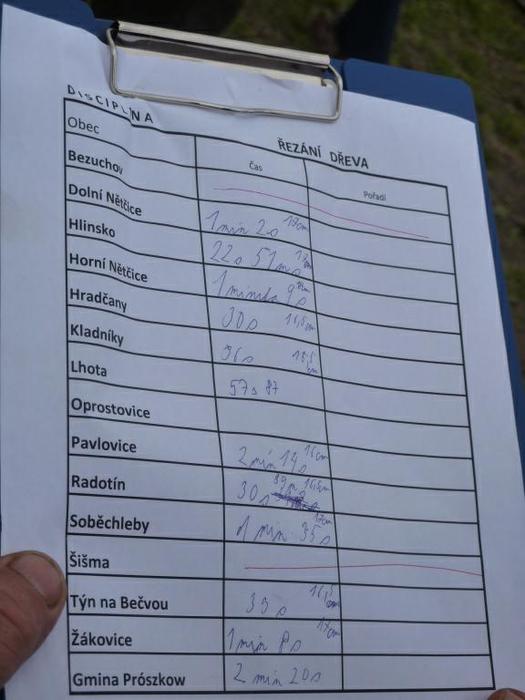 DISCIPLINA ŘEZÁNÍ DŘEVA
Obec Čas Pořadí
Bezuchov
Dolní Nětčice 1 min 2s 17cm
Hlinsko 22s 51ms
Horní Nětčice 1 minuta 9s
Hradčany 30s 16,5cm
Kladníky 36s 18,5 cm
Lhota 57s 87
Oprostovice
Pavlovice 2 min 14s 16cm
Radotín 30s 16,5cm
Soběchleby 1 min 35s 17cm
Šišma
Týn na Bečvou 33s 16,5cm
Žákovice 1 min 8s 17cm
Gmina Prószkow 2 min 20s